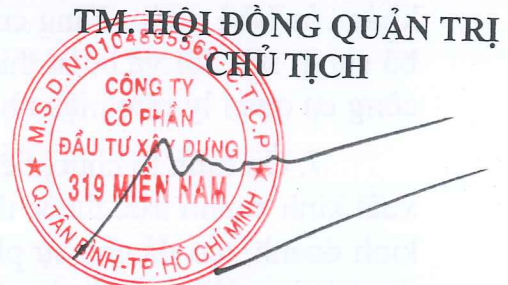 TM. HỘI ĐỒNG QUẢN TRỊ
CHỦ TỊCH
M.S.D.N:0104895562-C.T.C.P
CÔNG TY
CỔ PHẦN
ĐẦU TƯ XÂY DỰNG
319 MIỀN NAM
Q.TÂN BÌNH-TP.HỒ CHÍ MINH